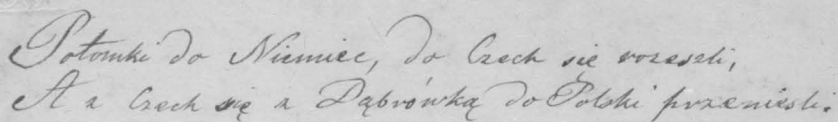 Potomki do Niemiec, do Czech się rozeszli,
A z Czech się z Dąbrówką do Polski przenieśli.